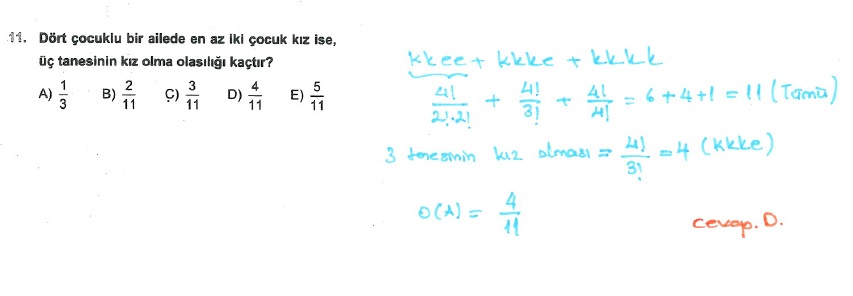 11. Dört çocuklu bir ailede en az iki çocuk kız ise,
üç tanesinin kız olma olasılığı kaçtır?
A) 1/3 B) 2/11 Ç) 3/11 D) 4/11 E) 5/11
kkee + kkke + kkkk
4!/2!.2! + 4!/3! + 4!/4! = 6+4+1 = 11 (Tümü)
3 tanesinin kız olması = 4!/3! = 4 (kkke)
O(A) = 4/11
cevap. D.